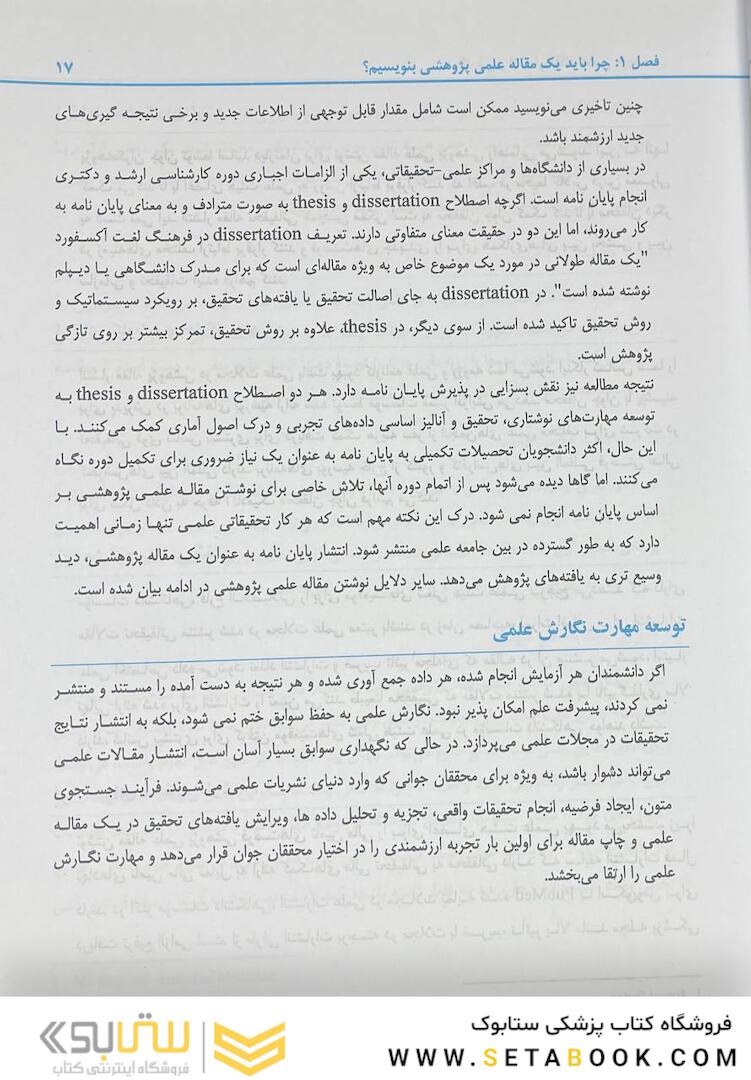 فصل ۱: چرا باید یک مقاله علمی پژوهشی بنویسیم؟ ۱۷
چنین تاخیری می‌نویسید ممکن است شامل مقدار قابل توجهی از اطلاعات جدید و برخی نتیجه گیری‌های
جدید ارزشمند باشد.
در بسیاری از دانشگاه‌ها و مراکز علمی-تحقیقاتی، یکی از الزامات اجباری دوره کارشناسی ارشد و دکتری
انجام پایان نامه است. اگرچه اصطلاح dissertation و thesis به صورت مترادف و به معنای پایان نامه به
کار می‌روند، اما این دو در حقیقت معنای متفاوتی دارند. تعریف dissertation در فرهنگ لغت آکسفورد
"یک مقاله طولانی در مورد یک موضوع خاص به ویژه مقاله‌ای است که برای مدرک دانشگاهی یا دیپلم
نوشته شده است". در dissertation به جای اصالت تحقیق یا یافته‌های تحقیق، بر رویکرد سیستماتیک و
روش تحقیق تاکید شده است. از سوی دیگر، در thesis، علاوه بر روش تحقیق، تمرکز بیشتر بر روی تازگی
پژوهش است.
نتیجه مطالعه نیز نقش بسزایی در پذیرش پایان نامه دارد. هر دو اصطلاح dissertation و thesis به
توسعه مهارت‌های نوشتاری، تحقیق و آنالیز اساسی داده‌های تجربی و درک اصول آماری کمک می‌کنند. با
این حال، اکثر دانشجویان تحصیلات تکمیلی به پایان نامه به عنوان یک نیاز ضروری برای تکمیل دوره نگاه
می‌کنند. اما گاها دیده می‌شود پس از اتمام دوره آنها، تلاش خاصی برای نوشتن مقاله علمی پژوهشی بر
اساس پایان نامه انجام نمی شود. درک این نکته مهم است که هر کار تحقیقاتی علمی تنها زمانی اهمیت
دارد که به طور گسترده در بین جامعه علمی منتشر شود. انتشار پایان نامه به عنوان یک مقاله پژوهشی، دید
وسیع تری به یافته‌های پژوهش می‌دهد. سایر دلایل نوشتن مقاله علمی پژوهشی در ادامه بیان شده است.
توسعه مهارت نگارش علمی
اگر دانشمندان هر آزمایش انجام شده، هر داده جمع آوری شده و هر نتیجه به دست آمده را مستند و منتشر
نمی کردند، پیشرفت علم امکان پذیر نبود. نگارش علمی به حفظ سوابق ختم نمی شود، بلکه به انتشار نتایج
تحقیقات در مجلات علمی می‌پردازد. در حالی که نگهداری سوابق بسیار آسان است، انتشار مقالات علمی
می‌تواند دشوار باشد، به ویژه برای محققان جوانی که وارد دنیای نشریات علمی می‌شوند. فرآیند جستجوی
متون، ایجاد فرضیه، انجام تحقیقات واقعی، تجزیه و تحلیل داده ها، ویرایش یافته‌های تحقیق در یک مقاله
علمی و چاپ مقاله برای اولین بار تجربه ارزشمندی را در اختیار محققان جوان قرار می‌دهد و مهارت نگارش
علمی را ارتقا می‌بخشد.
فروشگاه کتاب پزشکی ستابوک
WWW.SETABOOK.COM
ستابوک
فروشگاه اینترنتی کتاب